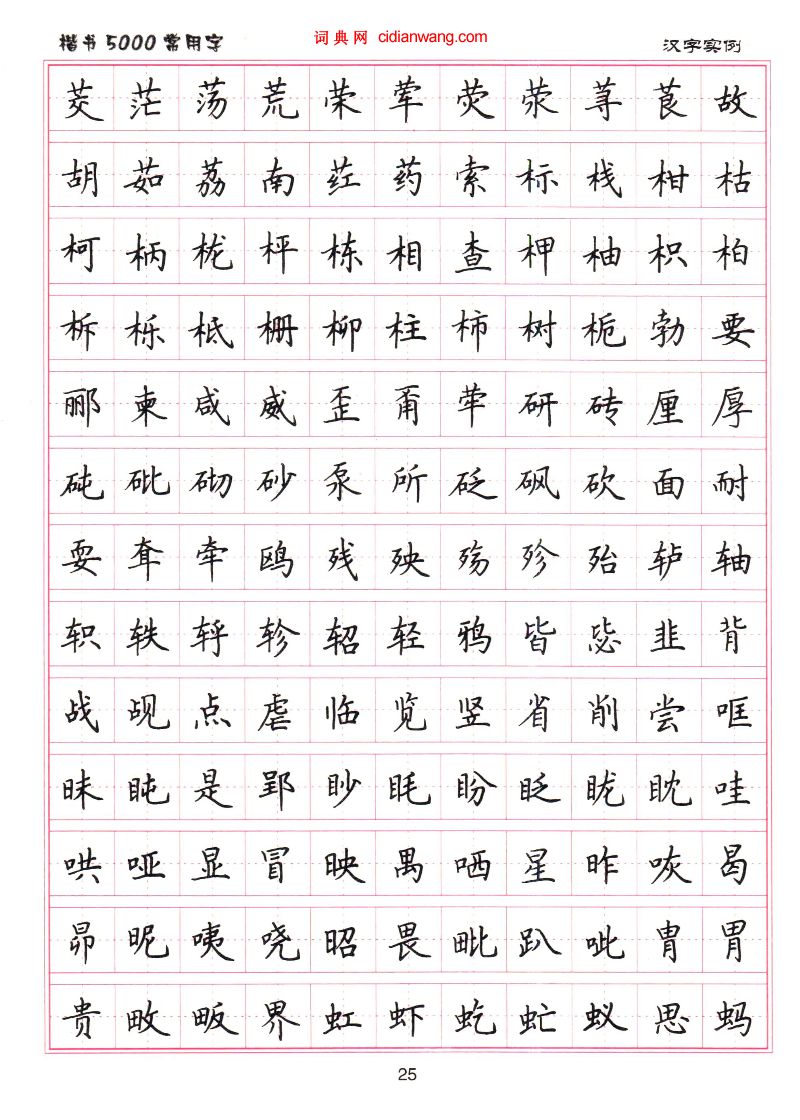 楷书5000常用字 词典网 cidianwang.com 汉字实例
茭 茫 荡 荒 荣 荤 荧 荥 荨 茛 故
胡 茹 荔 南 荭 药 索 标 栈 柑 枯
柯 柄 栊 枰 栋 相 查 柙 柚 枳 柏
柝 栎 柢 栅 柳 柱 柿 树 栀 勃 要
郦 柬 咸 威 歪 甭 荦 研 砖 厘 厚
砘 砒 砌 砂 泵 所 砭 砜 砍 面 耐
耍 耷 牵 鸥 残 殃 殇 殄 殆 轳 轴
轵 轶 轷 轸 轺 轻 鸦 皆 毖 韭 背
战 觇 点 虐 临 览 竖 省 削 尝 哐
昧 盹 是 郢 眇 眊 盼 眨 昽 眈 哇
哄 哑 显 冒 映 禺 哂 星 昨 咴 曷
昴 昵 咦 哓 昭 畏 毗 趴 呲 胄 胃
贵 畋 畈 界 虹 虾 虼 虻 蚁 思 蚂
25